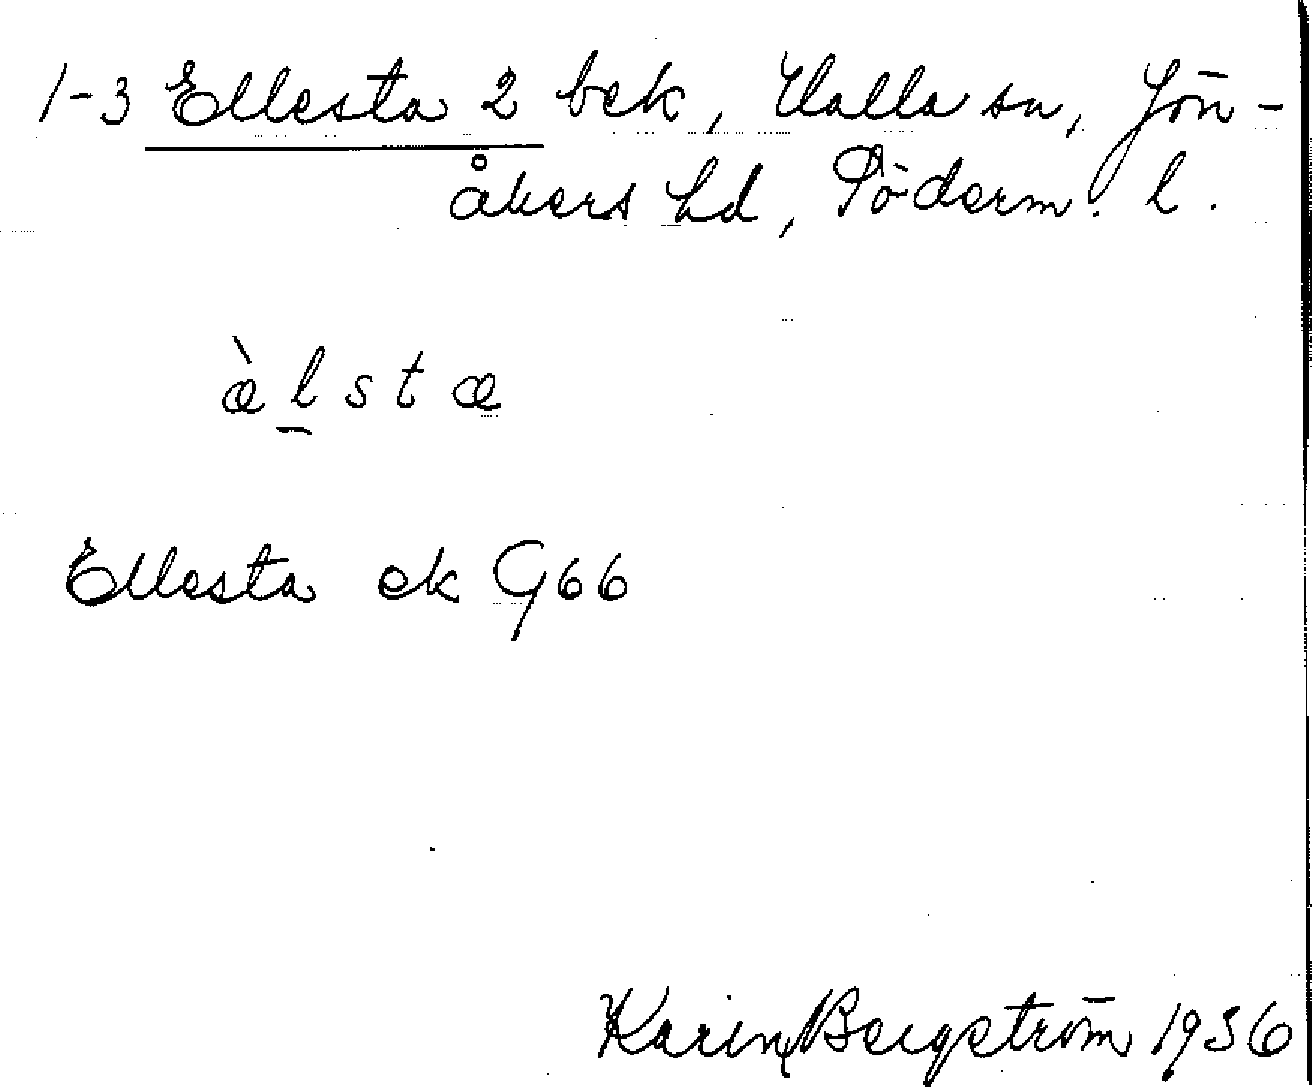 1-3 Ellesta 2 bek, Halla sn, Jön-
åkers hd, Söderm. l.
æ̀l̠stæ
Ellesta ek G66
Karin Bergström 1936